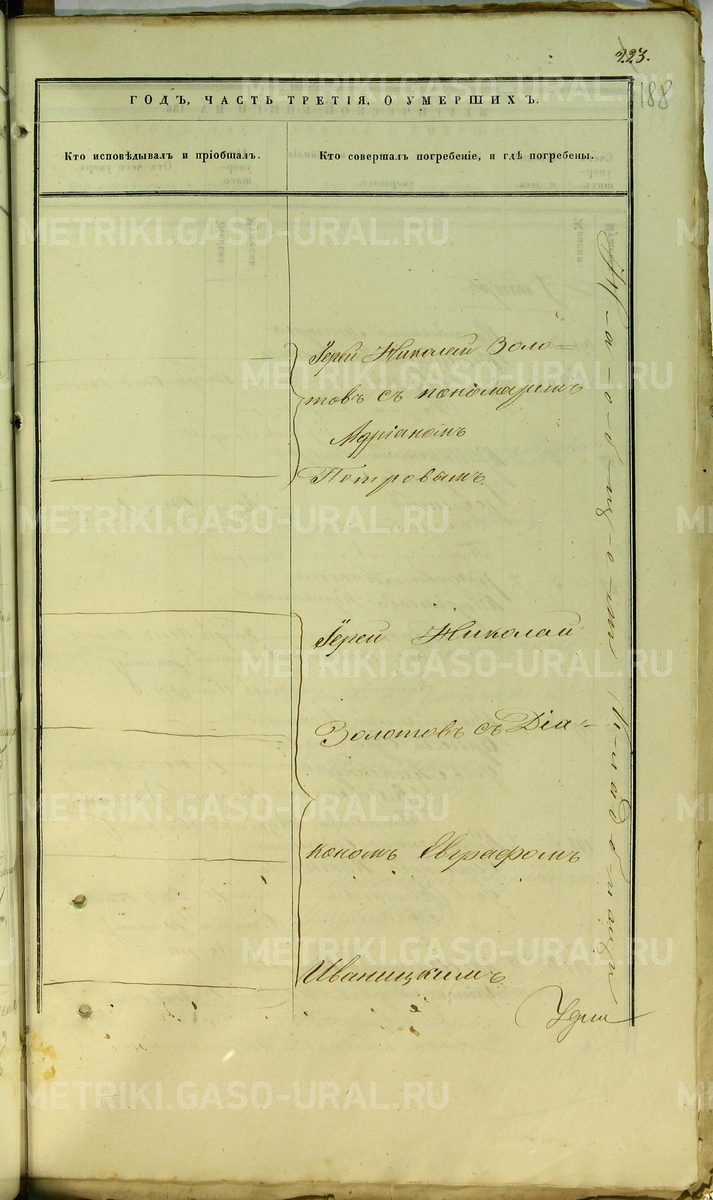 223.
188
ГОДЪ, ЧАСТЬ ТРЕТІЯ, О УМЕРШИХЪ.
Кто исповѣдывалъ и пріобщалъ.
Кто совершалъ погребеніе, и гдѣ погребены.
Іерей Николай Золо-
товъ съ пономаремъ
Адріаномъ
Петровымъ
Іерей Николай
Золотовъ съ Діа-
кономъ Евграфомъ
Иваницкимъ
На общемъ кладбищѣ
METRIKI.GASO-URAL.RU